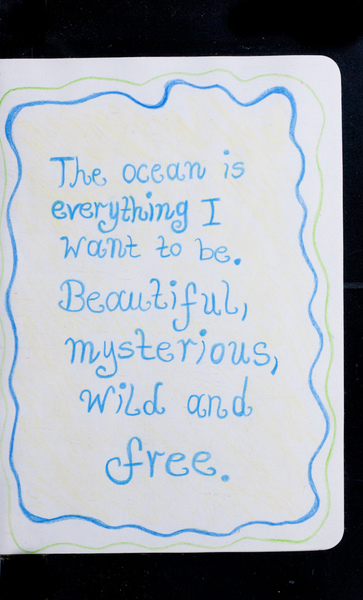 The ocean is
everything I
want to be.
Beautiful,
mysterious,
wild and
free.